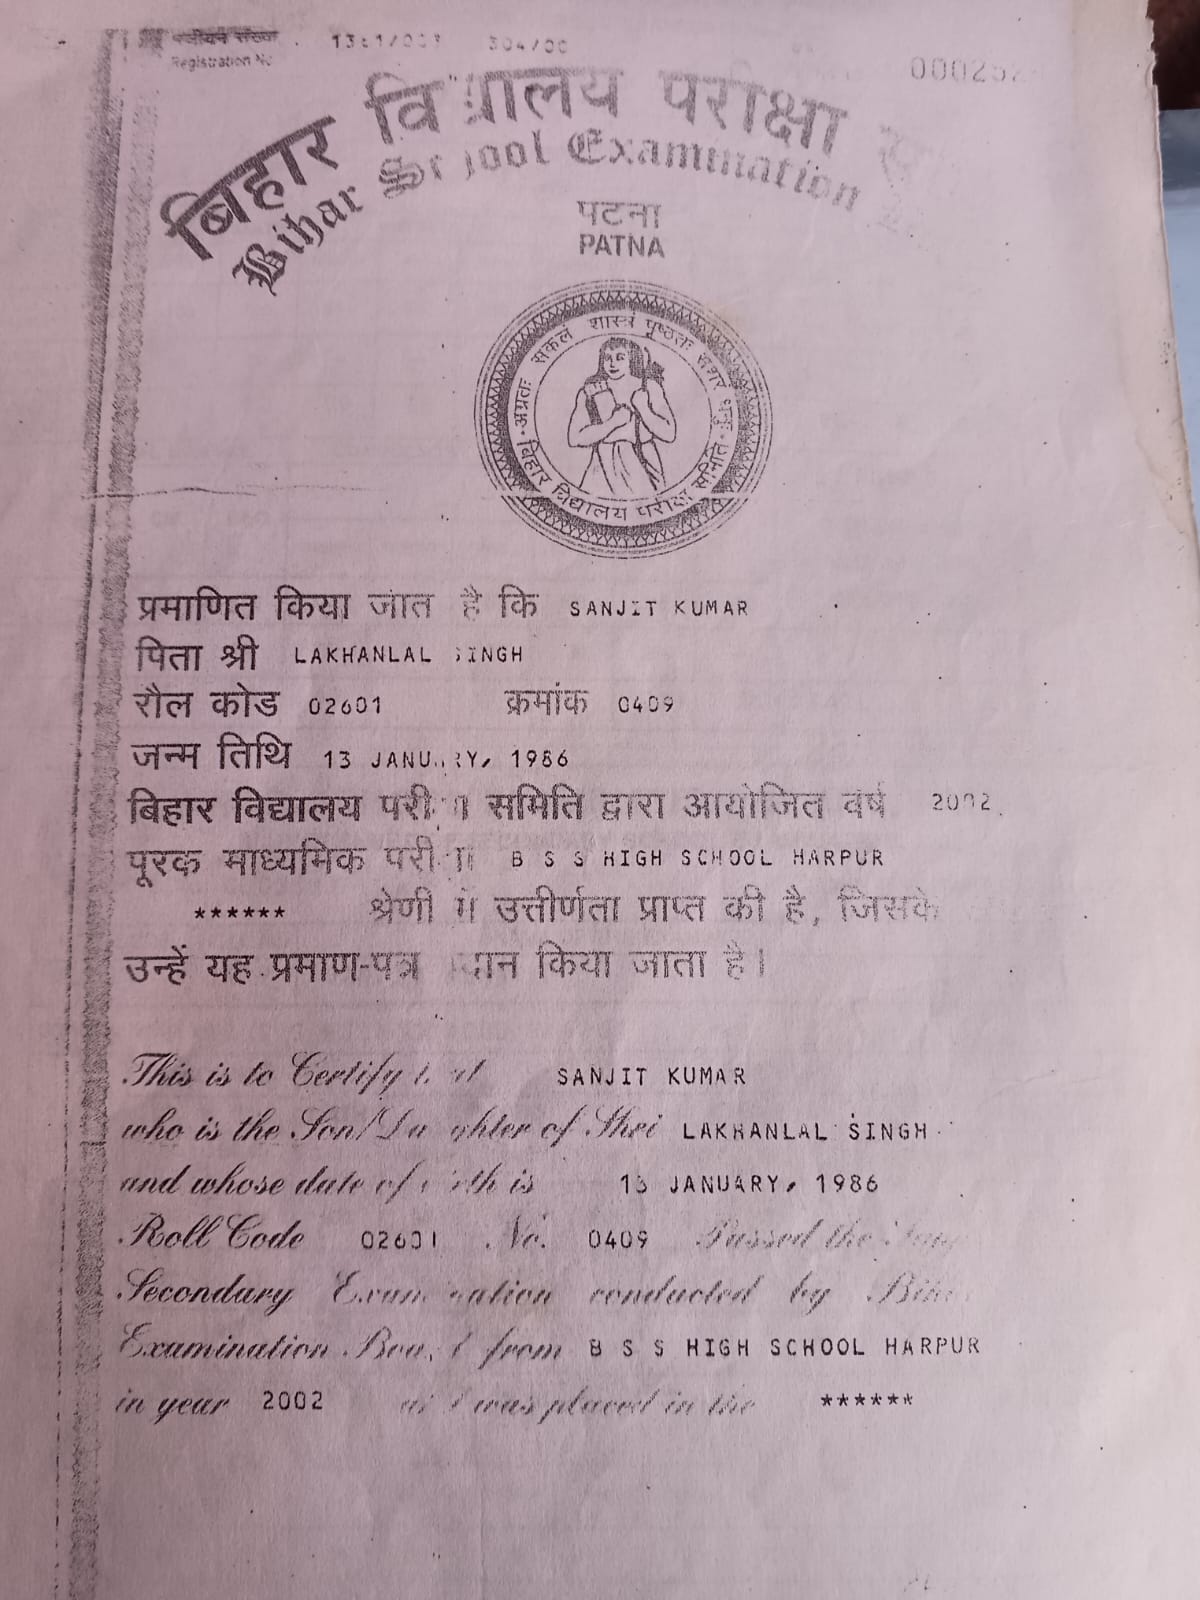 Registration No
304/00
बिहार विद्यालय परीक्षा
Bihar School Examination
पटना
PATNA
अग्रतः सकलं शास्त्रं पृष्ठतः सशरं धनुः
बिहार विद्यालय परीक्षा समिति
प्रमाणित किया जाता है कि SANJIT KUMAR
पिता श्री LAKHANLAL SINGH
रौल कोड 02601 क्रमांक 0409
जन्म तिथि 13 JANUARY, 1986
बिहार विद्यालय परीक्षा समिति द्वारा आयोजित वर्ष 2002
पूरक माध्यमिक परीक्षा B S S HIGH SCHOOL HARPUR
****** श्रेणी में उत्तीर्णता प्राप्त की है, जिसके
उन्हें यह प्रमाण-पत्र प्रदान किया जाता है।
This is to Certify that SANJIT KUMAR
who is the Son/Daughter of Shri LAKHANLAL SINGH
and whose date of birth is 13 JANUARY, 1986
Roll Code 02601 No. 0409 Passed the
Secondary Examination conducted by
Examination Board from B S S HIGH SCHOOL HARPUR
in year 2002 and was placed in the ******